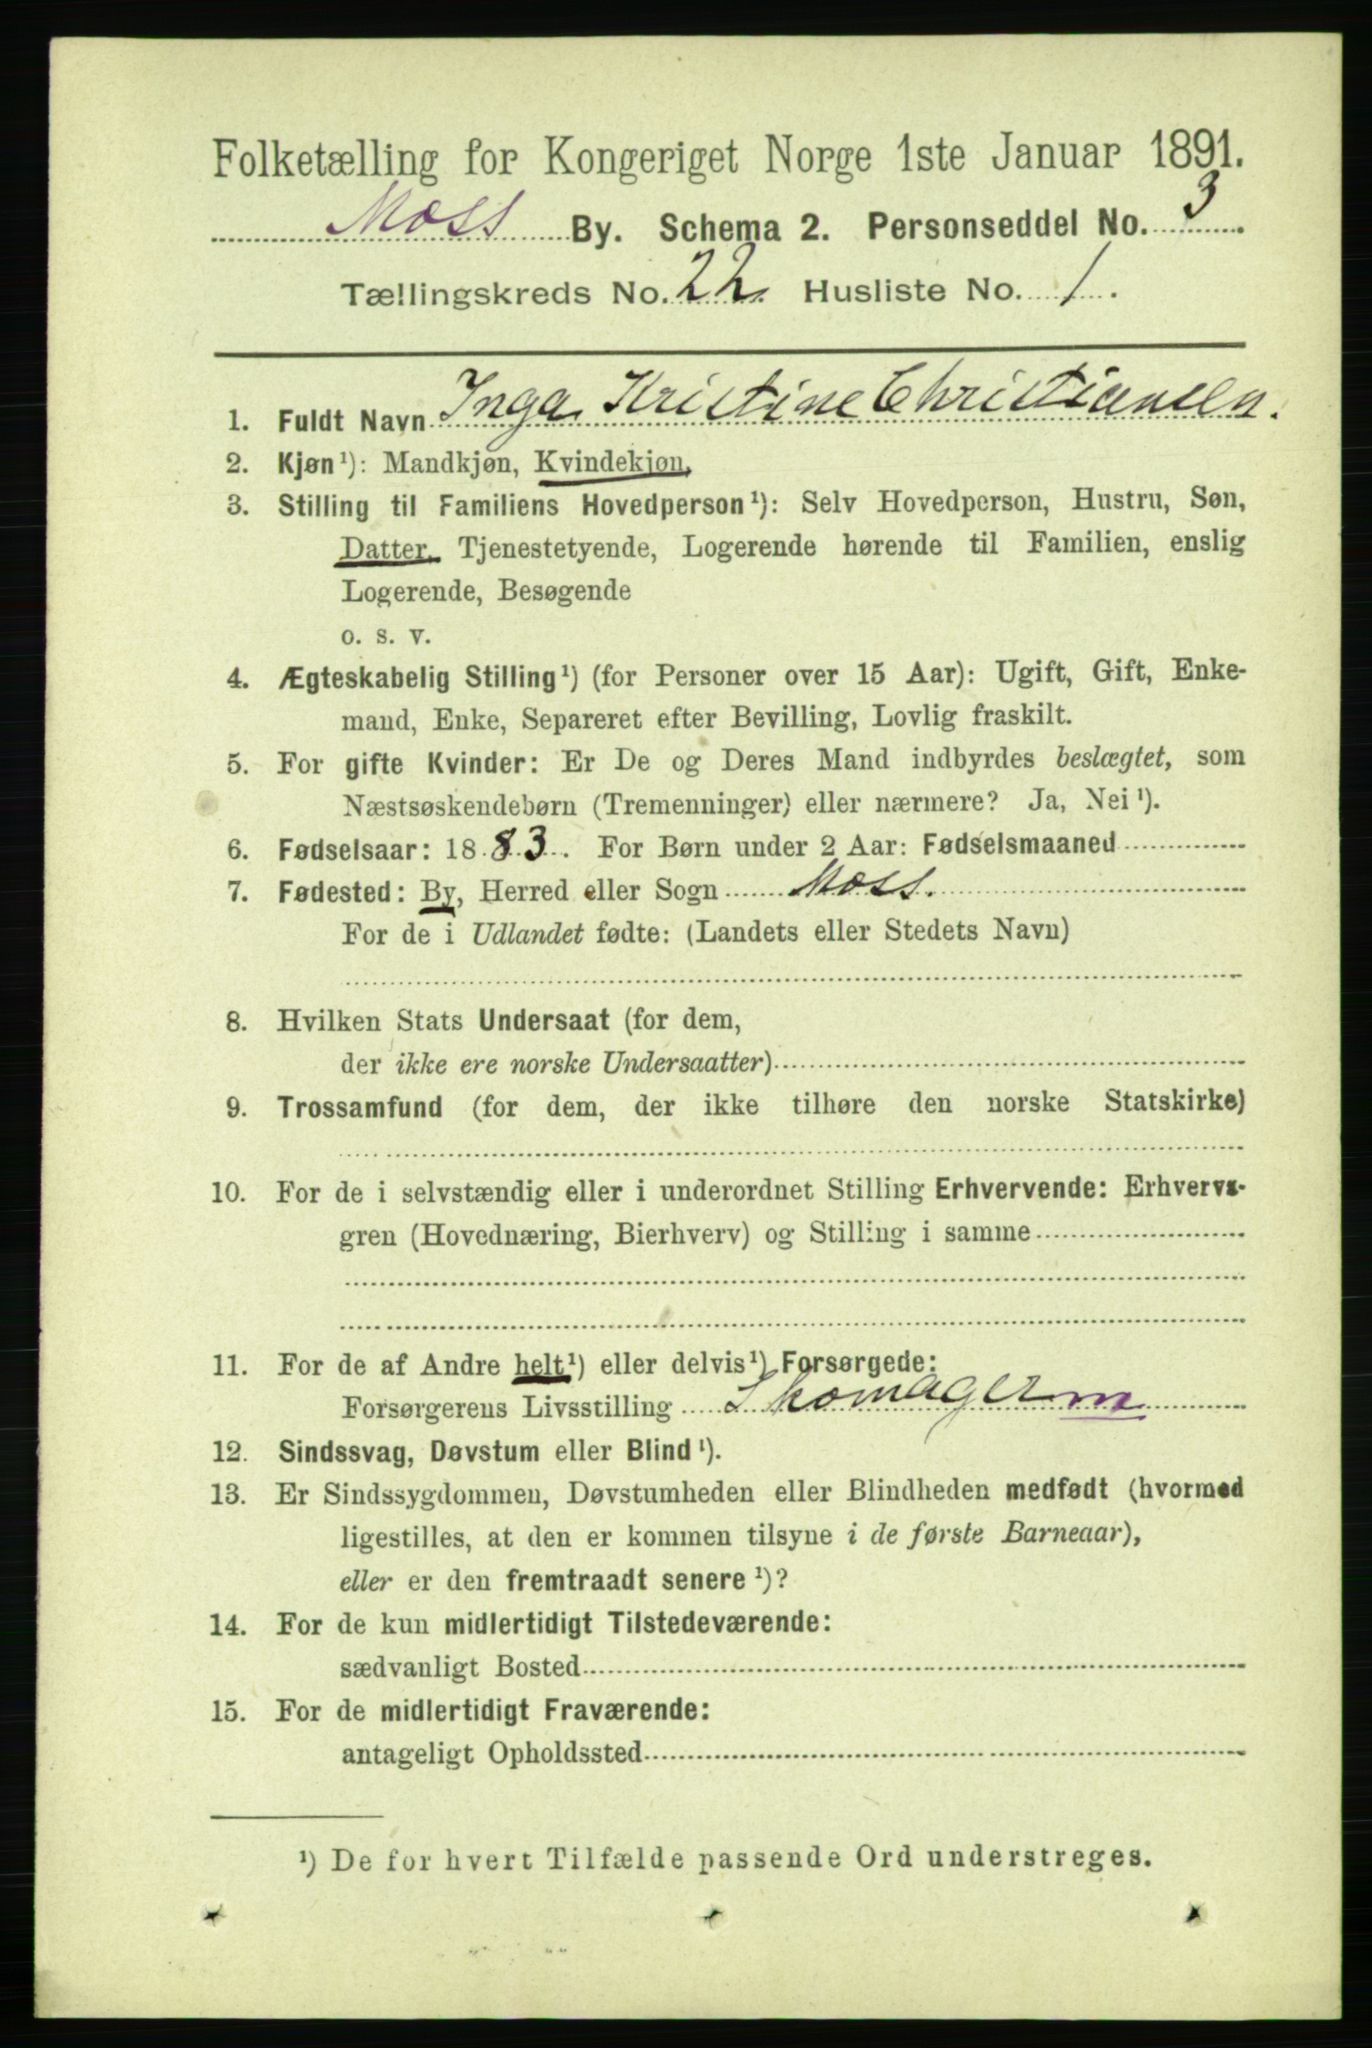 Folketælling for Kongeriget Norge 1ste Januar 1891.
Moss By. Schema 2. Personseddel No. 3.
Tællingskreds No. 22. Husliste No. 1.
1. Fuldt Navn Inga Kristine Christiansen.
2. Kjøn¹): Mandkjøn, Kvindekjøn,
3. Stilling til Familiens Hovedperson¹): Selv Hovedperson, Hustru, Søn,
Datter, Tjenestetyende, Logerende hørende til Familien, enslig
Logerende, Besøgende
o. s. v.
4. Ægteskabelig Stilling¹) (for Personer over 15 Aar): Ugift, Gift, Enke-
mand, Enke, Separeret efter Bevilling, Lovlig fraskilt.
5. For gifte Kvinder: Er De og Deres Mand indbyrdes beslægtet, som
Næstsøskendebørn (Tremenninger) eller nærmere? Ja, Nei¹).
6. Fødselsaar: 1883. For Børn under 2 Aar: Fødselsmaaned
7. Fødested: By, Herred eller Sogn Moss.
For de i Udlandet fødte: (Landets eller Stedets Navn)
8. Hvilken Stats Undersaat (for dem,
der ikke ere norske Undersaatter)
9. Trossamfund (for dem, der ikke tilhøre den norske Statskirke)
10. For de i selvstændig eller i underordnet Stilling Erhvervende: Erhvervs-
gren (Hovednæring, Bierhverv) og Stilling i samme
11. For de af Andre helt¹) eller delvis¹) Forsørgede:
Forsørgerens Livsstilling Skomagerm
12. Sindssvag, Døvstum eller Blind¹).
13. Er Sindssygdommen, Døvstumheden eller Blindheden medfødt (hvormed
ligestilles, at den er kommen tilsyne i de første Barneaar),
eller er den fremtraadt senere¹)?
14. For de kun midlertidigt Tilstedeværende:
sædvanligt Bosted
15. For de midlertidigt Fraværende:
antageligt Opholdssted
¹) De for hvert Tilfælde passende Ord understreges.